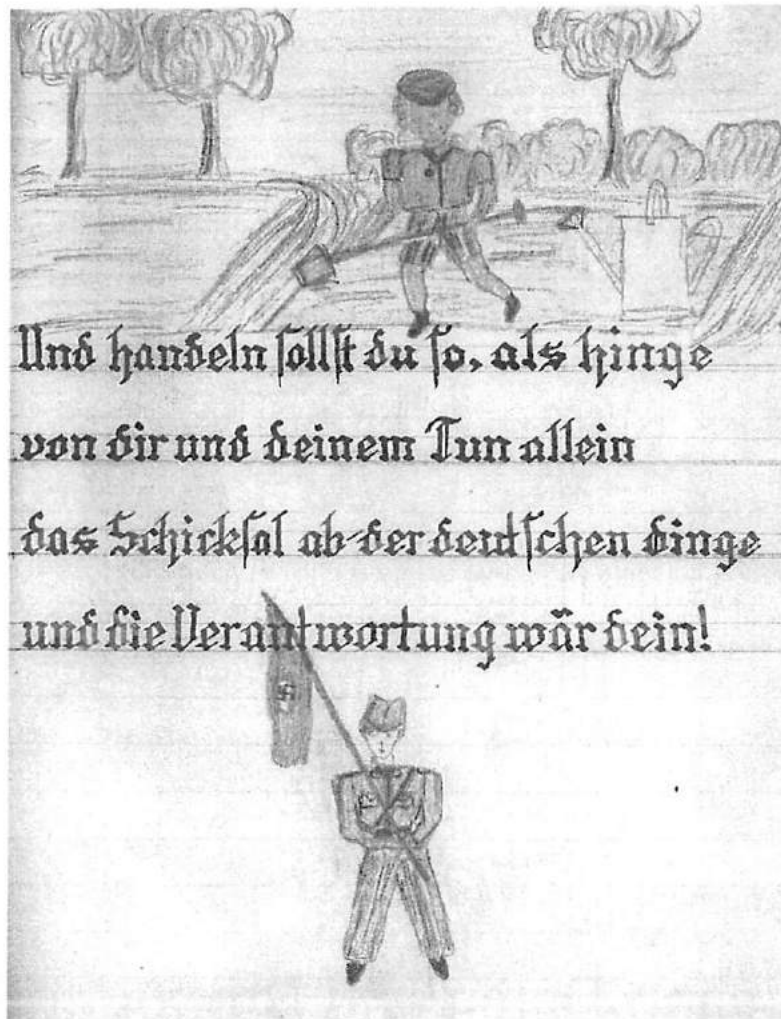 Und handeln sollst du so, als hinge
von dir und deinem Tun allein
das Schicksal ab der deutschen dinge
und die Verantwortung wär dein!